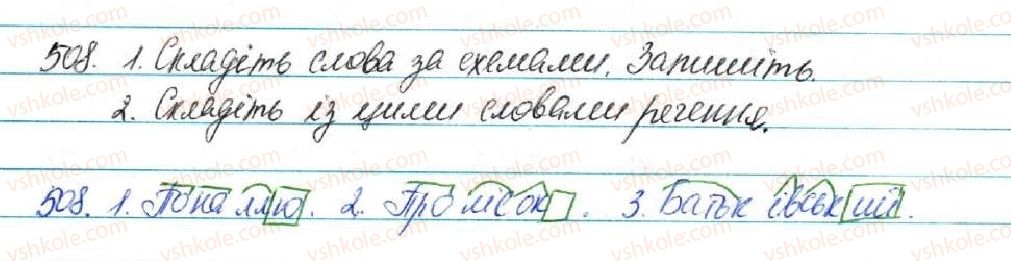 508. 1. Складіть слова за схемами. Запишіть.
2. Складіть із цими словами речення.
508. 1. Поналлю. 2. Пролісок. 3. Батьківський.